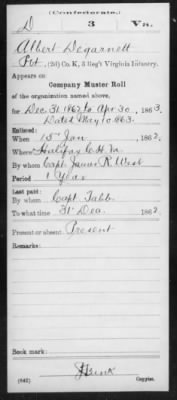 (Confederate.)
D 3 Va.
Albert Degarnett
Pvt., (2d) Co. K, 3 Reg't Virginia Infantry.
Appears on
Company Muster Roll
of the organization named above,
for Dec. 31 1862 to Apr 30, 1863.
Dated May 10 1863.
Enlisted:
When 15 Jan, 1862.
Where Halifax C H Va
By whom Capt. James R. West
Period 1 Year
Last paid:
By whom Capt Tabb
To what time 31 Dec. 1862.
Present or absent Present
Remarks:
Book mark:
(642) Copyist.